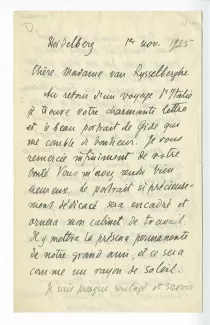 Heidelberg 1er nov. 1925
Chère Madame van Rysselberghe
Au retour d'un voyage d'Italie
je trouve votre charmante lettre
et le beau portrait de Gide qui
me comble de bonheur. Je vous
remercie infiniment de votre
bonté. Vous m'avez rendu bien
heureux. Le portrait si précieuse-
ment dédicacé sera encadré et
ornera mon cabinet de travail.
Il y mettra la présence permanente
de notre grand ami, et ce sera
comme un rayon de soleil.
Je suis presque soulagé de savoir